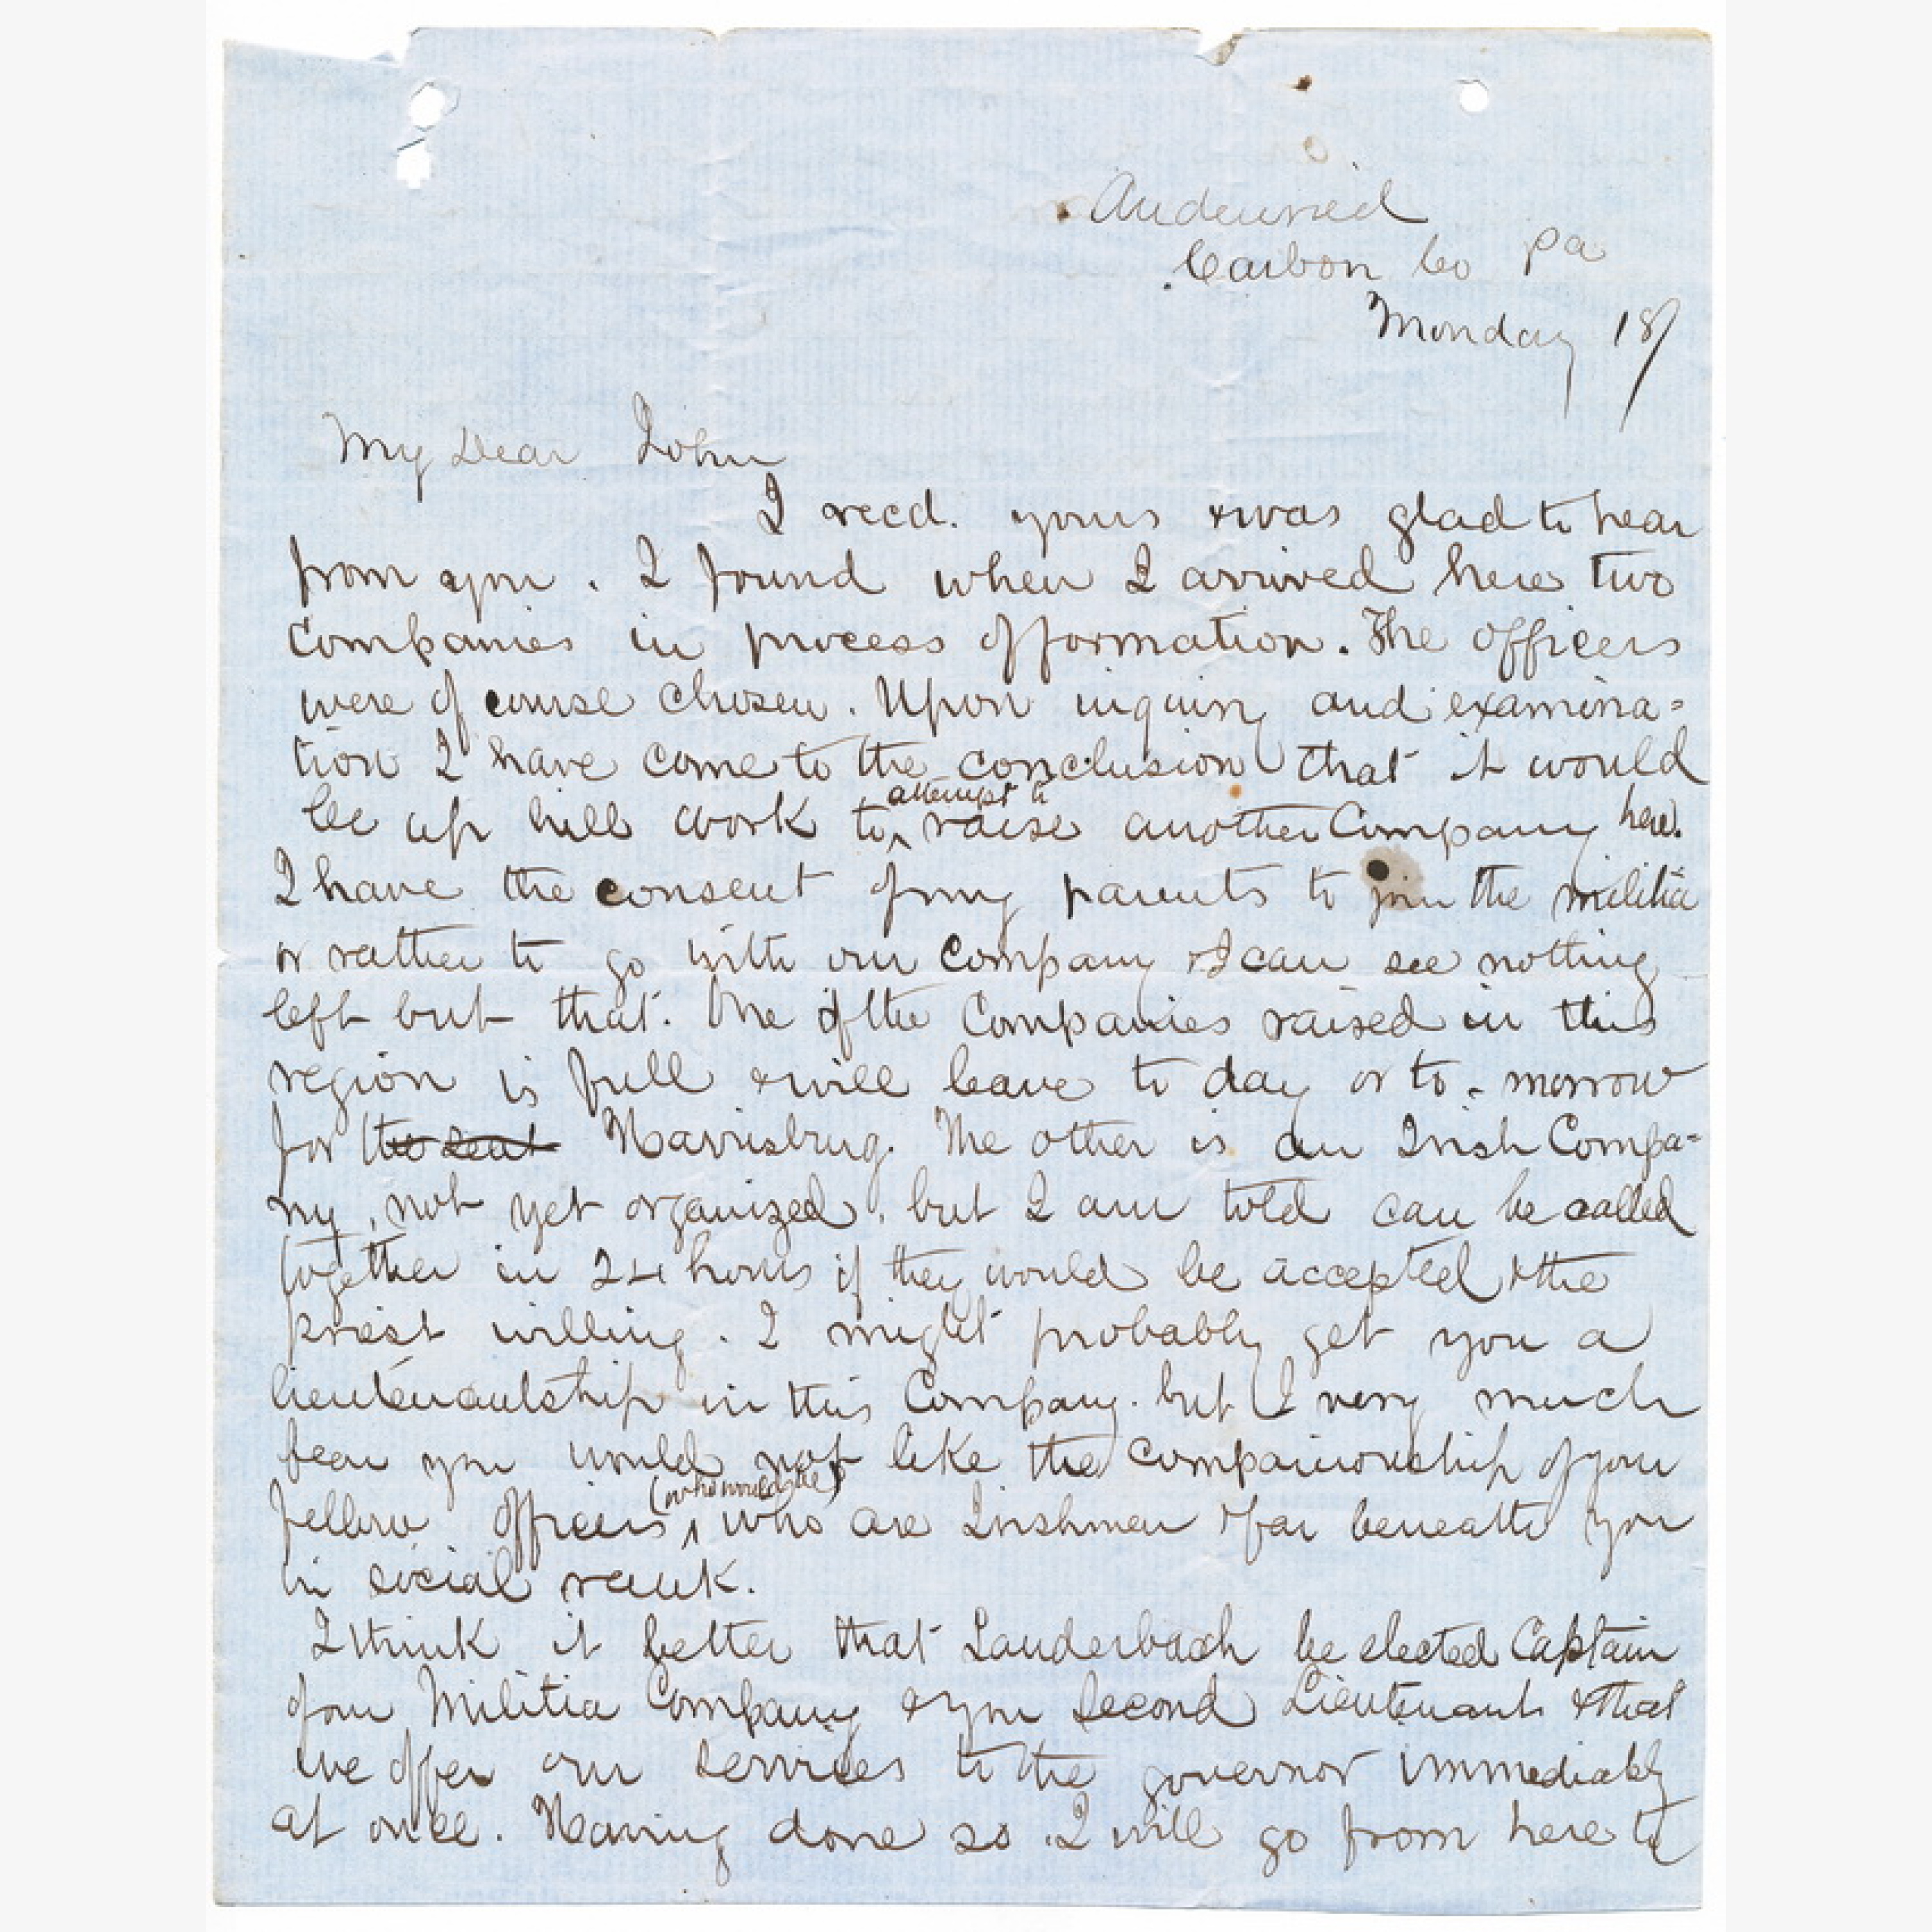 Audenried
Carbon Co Pa
Monday 18/
My Dear John
I recd. yours & was glad to hear
from you. I found when I arrived here two
Companies in process of formation. The officers
were of course chosen. Upon inquiry and examina=
tion I have come to the conclusion that it would
be up hill work to attempt to raise another Company here.
I have the consent of my parents to join the militia
or rather to go with our Company & I can see nothing
left but that. One of the Companies raised in this
region is full & will leave to day or to-morrow
for Harrisburg. The other is an Irish Compa=
ny, not yet organized, but I am told can be called
together in 24 hours if they would be accepted & the
priest willing. I might probably get you a
lieutenantship in this Company. but I very much
fear you would not like the companionship of your
fellow officers (who would be) who are Irishmen & far beneath you
in social rank.
I think it better that Lauderbach be elected Captain
of our Militia Company & you Second Lieutenant & that
we offer our services to the governor immediably
at once. Having done so I will go from here to